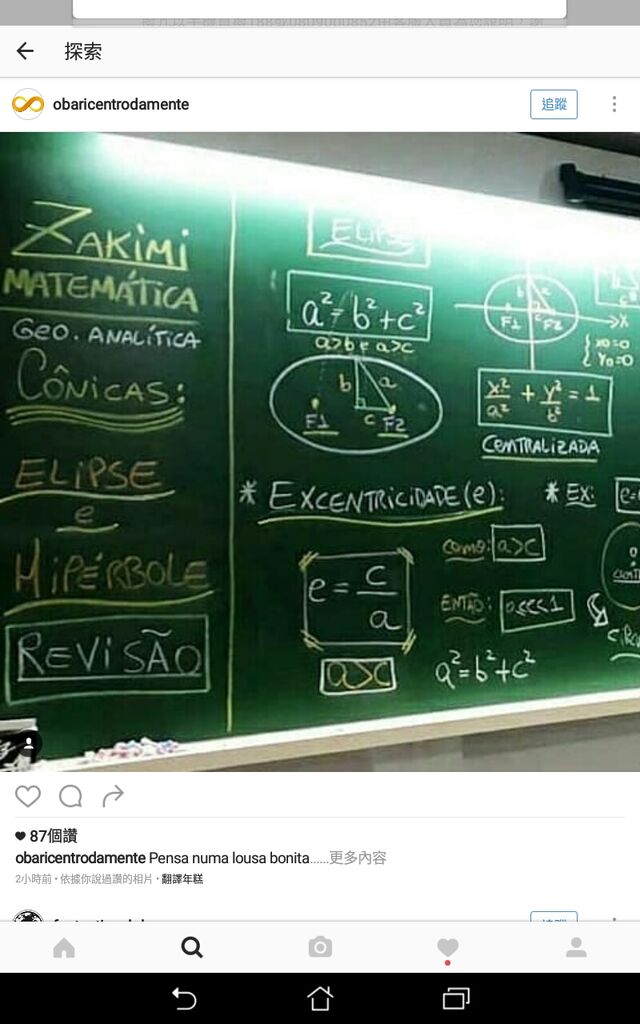 探索
obaricentrodamente
追蹤
ZAKIMI
MATEMÁTICA
GEO. ANALÍTICA
CÔNICAS:
ELIPSE
e
HIPÉRBOLE
REVISÃO
ELIPSE
a² = b² + c²
a>b e a>c
b
a
c
F1
F2
b
a
c
F1
F2
X
x0=0
Y0=0
x²/a² + y²/b² = 1
CENTRALIZADA
* EXCENTRICIDADE (e):
* EX:
e = c/a
a>c
COMO: a>c
ENTÃO: 0<e<1
a² = b² + c²
87個讚
obaricentrodamente Pensa numa lousa bonita......更多內容
2小時前 • 依據你說過讚的相片 • 翻譯年糕